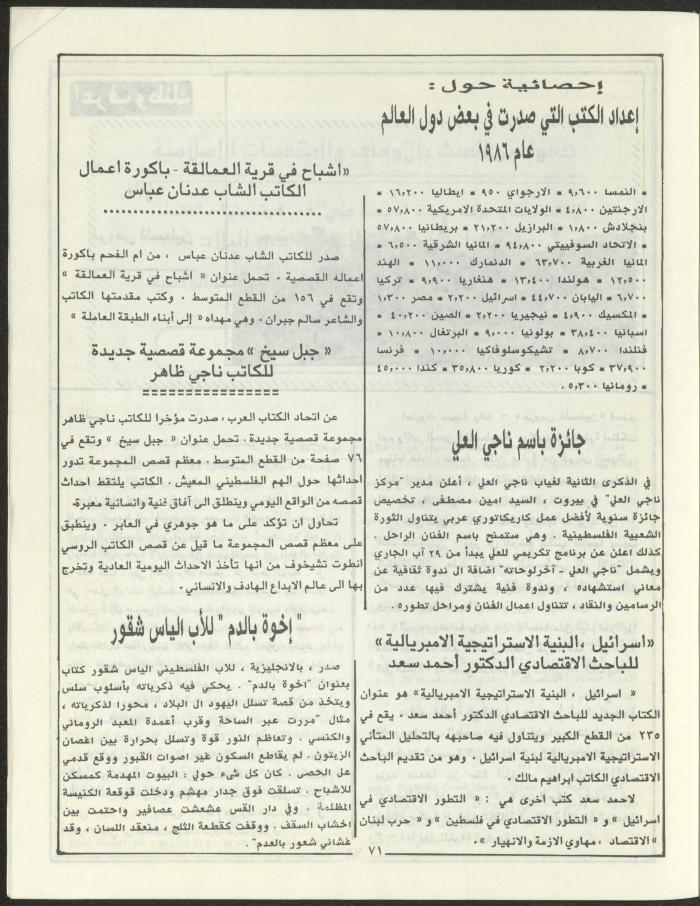 إحصائية حول :
إعداد الكتب التي صدرت في بعض دول العالم
عام ١٩٨٦
* النمسا ٩,٦٠٠ * الارجواي ٩٥٠ * ايطاليا ١٦,٢٠٠ *
الارجنتين ٤,٨٠٠ * الولايات المتحدة الامريكية ٥٧,٨٠٠ *
بنجلادش ١,٨٠٠ * البرازيل ٢١,٢٠٠ * بريطانيا ٥٧,٨٠٠
* الاتحاد السوفييتي ٩٤,٨٠٠ * المانيا الشرقية ٦,٥٠٠ *
المانيا الغربية ٦٣,٧٠٠ * الدنمارك ١١,٠٠٠ * الهند
١٢,٥٠٠ * هولندا ١٣,٤٠٠ * هنغاريا ٩,٩٠٠ * تركيا
٦,٧٠٠ * اليابان ٤٤,٧٠٠ * اسرائيل ٢,٢٠٠ * مصر ١,٣٠٠
* المكسيك ٤,٩٠٠ * نيجيريا ٢,٢٠٠ * الصين ٤٠,٢٠٠ *
اسبانيا ٣٨,٤٠٠ * بولونيا ٩,٠٠٠ * البرتغال ١٠,٨٠٠ *
فنلندا ٨,٧٠٠ * تشيكوسلوفاكيا ١٠,٠٠٠ * فرنسا
٣٧,٩٠٠ * كوبا ٢,٢٠٠ * كوريا ٣٥,٨٠٠ * كندا ٤٥,٠٠٠
* رومانيا ٥,٣٠٠ .
جائزة باسم ناجي العلي
في الذكرى الثانية لغياب ناجي العلي ، أعلن مدير "مركز
ناجي العلي" في بيروت ، السيد امين مصطفى ، تخصيص
جائزة سنوية لأفضل عمل كاريكاتوري عربي يتناول الثورة
الشعبية الفلسطينية . وهي ستمنح باسم الفنان الراحل .
كذلك اعلن عن برنامج تكريمي للعلي يبدأ من ٢٩ آب الجاري
ويشمل "ناجي العلي - آخرلوحاته" اضافة ال ندوة ثقافية عن
معاني استشهاده ، وندوة فنية يشترك فيها عدد من
الرسامين والنقاد ، تتناول اعمال الفنان ومراحل تطوره .
«اسرائيل ، البنية الاستراتيجية الامبريالية»
للباحث الاقتصادي الدكتور أحمد سعد
« اسرائيل ، البنية الاستراتيجية الامبريالية» هو عنوان
الكتاب الجديد للباحث الاقتصادي الدكتور أحمد سعد . يقع في
٢٣٥ من القطع الكبير ويتناول فيه صاحبهه بالتحليل المتأني
الاستراتيجية الامبريالية لبنية اسرائيل . وهو من تقديم الباحث
الاقتصادي الكاتب ابراهيم مالك .
لاحمد سعد كتب أخرى هي : « التطور الاقتصادي في
اسرائيل » و « التطور الاقتصادي في فلسطين » و « حرب لبنان
« الاقتصاد ، مهاوي الازمة والانهيار » .
«اشباح في قرية العمالقة - باكورة اعمال
الكاتب الشاب عدنان عباس
صدر للكاتب الشاب عدنان عباس ، من ام الفحم باكورة
اعماله القصصية . تحمل عنوان « اشباح في قرية العمالقة »
وتقع في ١٥٦ من القطع المتوسط . وكتب مقدمتها الكاتب
والشاعر سالم جبران . وهي مهداه «إلى أبناء الطبقة العاملة »
« جبل سيخ » مجموعة قصصية جديدة
للكاتب ناجي ظاهر
عن اتحاد الكتاب العرب ، صدرت مؤخرا للكاتب ناجي ظاهر
مجموعة قصصية جديدة . تحمل عنوان « جبل سيخ » وتقع في
٧٦ صفحة من القطع المتوسط . معظم قصص المجموعة تدور
احداثها حول الهم الفلسطيني المعيش . الكاتب يلتقط احداث
قصصه من الواقع اليومي وينطلق الى آفاق فنية وانسانية معبرة .
تحاول ان تؤكد على ما هو جوهري في العابر . وينطبق
على معظم قصص المجموعة ما قيل عن قصص الكاتب الروسي
انطوت تشيخوف من انها تأخذ الاحداث اليومية العادية وتخرج
بها الى عالم الابداع الهادف والانساني .
" إخوة بالدم " للأب الياس شقور
صدر ، بالانجليزية ، للاب الفلسطيني الياس شقور كتاب
بعنوان "اخوة بالدم" . يحكي فيه ذكرياته بأسلوب سلس
ويتخذ من قصة تسلل اليهود ال البلاد ، محورا لذكرياته ،
مثال "مررت عبر الساحة وقرب أعمدة المعبد الروماني
والكنسي . وتعاظم النور قوة وتسلل بحرارة بين اغصان
الزيتون . لم يقاطع السكون غير اصوات القبور ووقع قدمي
عل الحصى . كان كل شيء حولي : البيوت المهدمة كمسكن
للاشباح . تسلقت فوق جدار مهشم ودخلت قوقعة الكنيسة
المظلمة . وفي دار القس عشعشت عصافير واحتمت بين
اخشاب السقف . ووقفت كقطعة الثلج ، منعقد اللسان ، وقد
غشاني شعور بالعدم" .
٧١